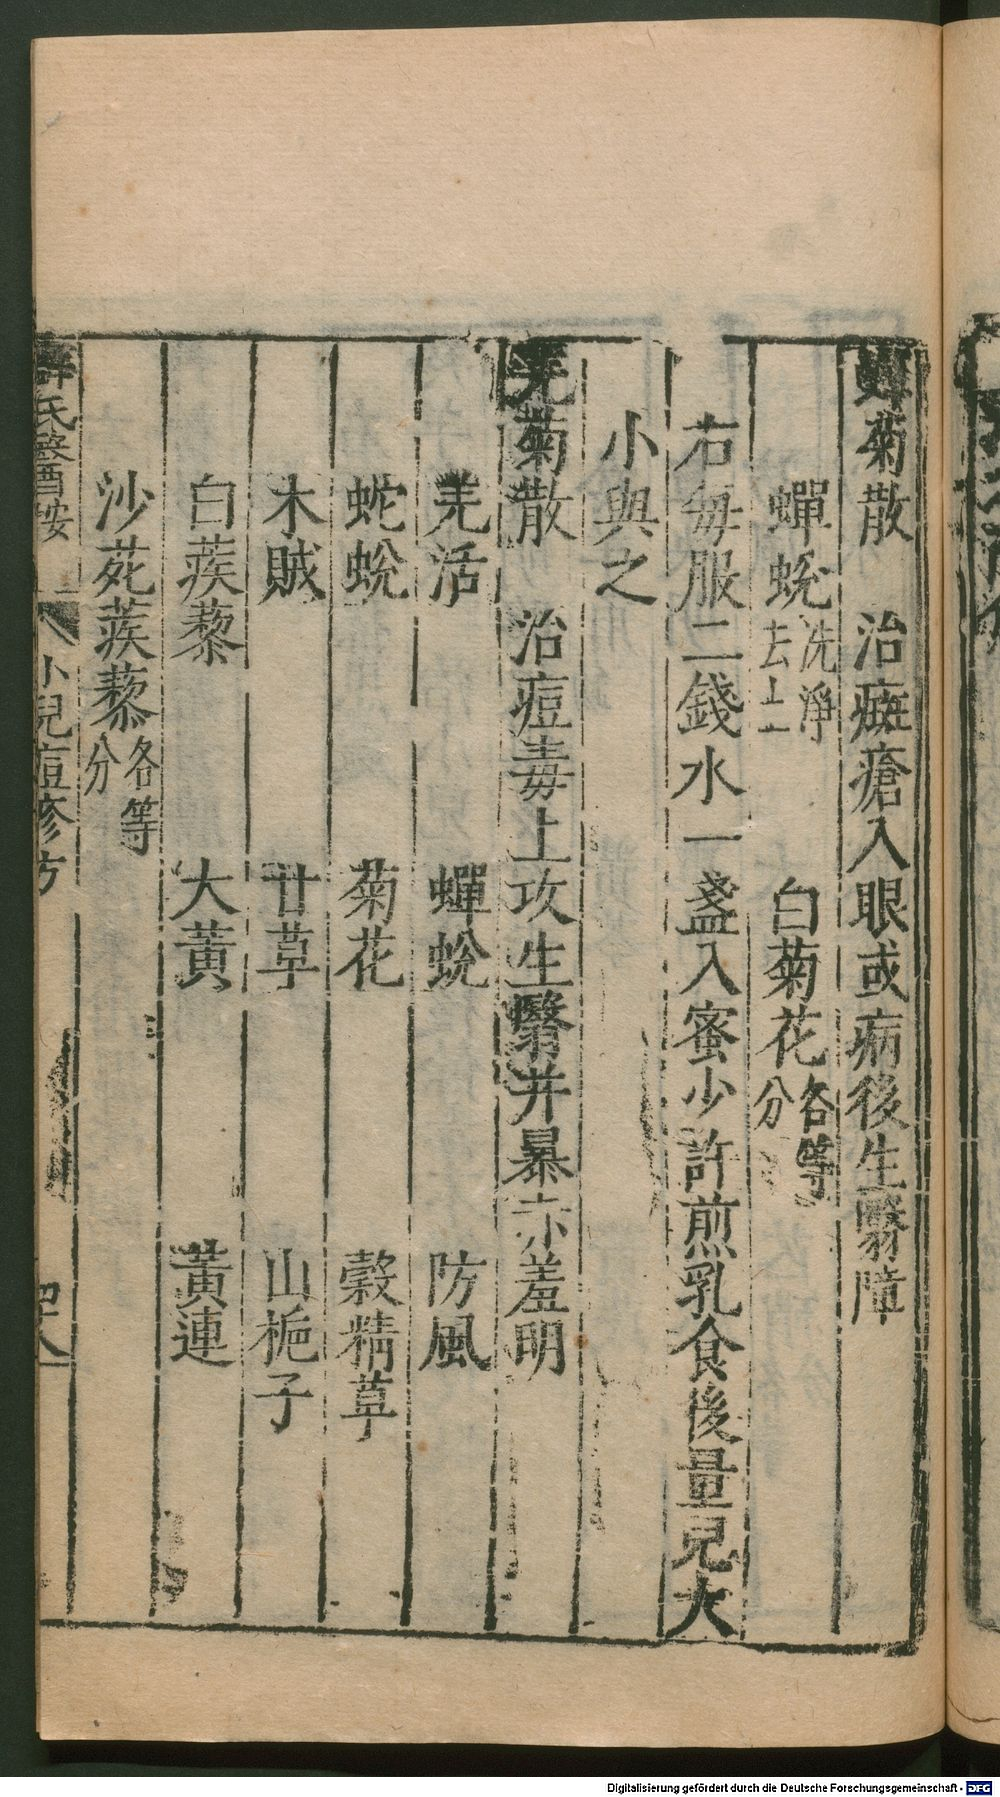 蟬菊散　治癍瘡入眼或病後生翳障
蟬蛻洗淨去土　白菊花各等分
右每服二錢水一盞入蜜少許煎乳食後量兒大
小與之
羌菊散　治痘毒上攻生翳并暴赤羞明
羌活　蟬蛻　防風
蛇蛻　菊花　穀精草
木賊　甘草　山梔子
白蒺藜　大黃　黃連
沙苑蒺藜各等分
薛氏醫按　小兒痘疹方　四十八
Digitalisierung gefördert durch die Deutsche Forschungsgemeinschaft - DFG